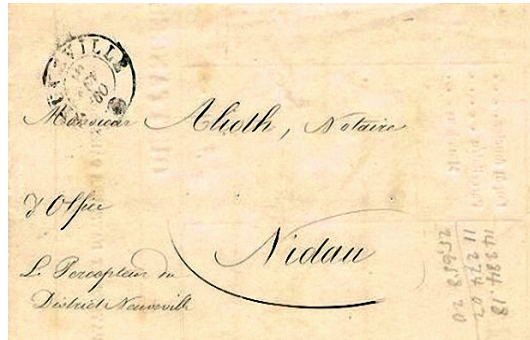 NEUVEVILLE
Monsieur Alioth, Notaire
d'Office
Nidau
Le Percepteur du
District Neuveville
14384.18
11274.02
25658 20